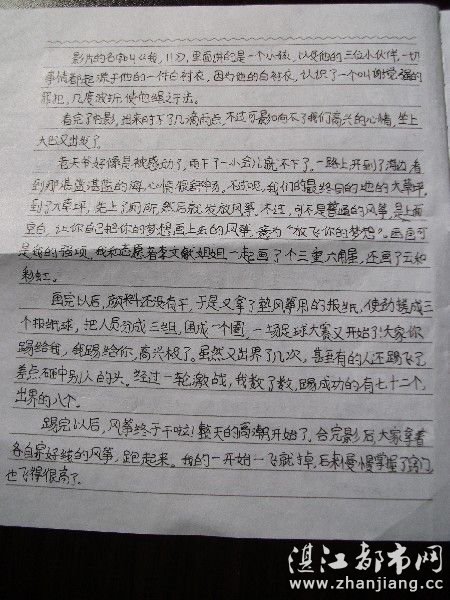 影片的名字叫《我，11》，里面讲的是一个小孩，以及他的三位小伙伴，一切
事情都起源于他的一件白衬衣，因为他的白衬衣，认识了一个叫谢觉强的
罪犯，几度放玩，使他绳之于法。
看完了电影，出来时下了几滴雨点，不过可影响不了我们高兴的心情，坐上
大巴又出发了。
老天爷好像是被感动了，雨下了一小会儿就不下了。一路上，开到了海边看
到那很蓝湛蓝的海，心情很舒畅，不好呢，我们的最终目的地的大草坪，
到了大草坪，先上了厕所，然后就发放风筝，不过，可不是普通的风筝，是上面
空白，让你自己把你的梦想画上去的风筝，意为“放飞你的梦想”。画画可
是我的强项，我和志愿者李文敏姐姐一起画了个三重六角星，还画了云和
彩虹。
画完以后，颜料还没有干，于是又拿了垫风筝用的报纸，使劲揉成三
个报纸球，把人员分成三组，围成一个圈，一场足球大赛又开始了！大家你
踢给我，我踢给你，高兴极了。虽然又出界了几次，甚至有的人还踢飞了
差点砸中别人的头。经过一轮激战，我数了数，踢成功的有七十二个，
出界的八个。
踢完以后，风筝终于干啦！整天的高潮开始了，合完影后，大家拿着
各自穿好线的风筝，跑起来。我的一开始一飞就掉，后来慢慢掌握了窍门，
也飞得很高了。
湛江都市网
www.zhanjiang.cc